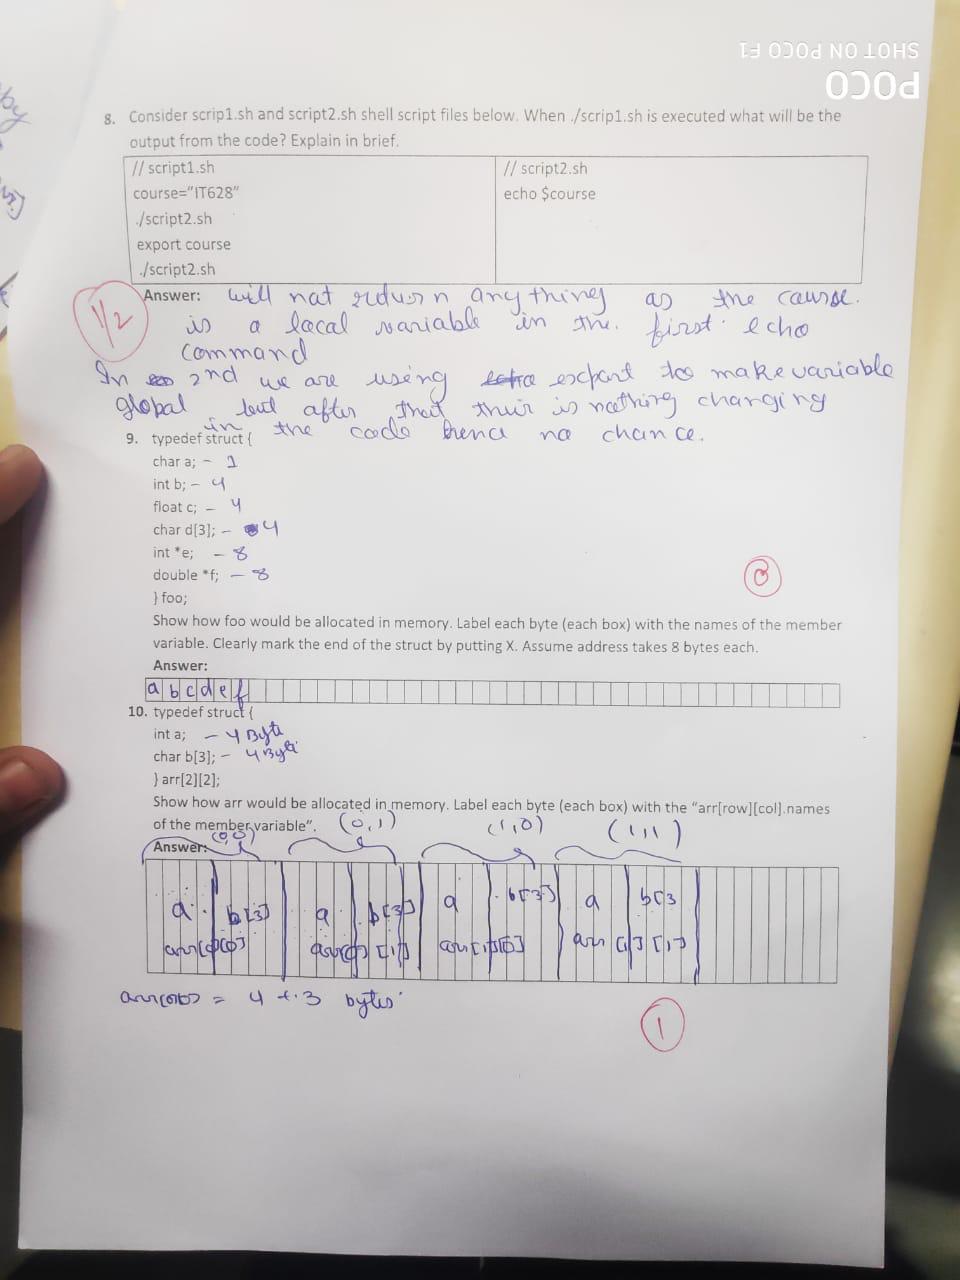 SHOT ON POCO F1
POCO
8. Consider scrip1.sh and script2.sh shell script files below. When ./scrip1.sh is executed what will be the
output from the code? Explain in brief.
// script1.sh
course="IT628"
./script2.sh
export course
./script2.sh
// script2.sh
echo $course
1/2
Answer: will nat return anything as the course.
is a local variable in the. first echo
command
In 2nd we are using export to make variable
global but after that thuir is nothing changing
in the code hence no chance.
9. typedef struct {
char a; - 1
int b; - 4
float c; - 4
char d[3]; - 4
int *e; - 8
double *f; - 8
} foo;
Show how foo would be allocated in memory. Label each byte (each box) with the names of the member
variable. Clearly mark the end of the struct by putting X. Assume address takes 8 bytes each.
Answer:
a b c d e f
10. typedef struct {
int a; - 4 Byte
char b[3]; - 4 Byte
} arr[2][2];
Show how arr would be allocated in memory. Label each byte (each box) with the "arr[row][col].names
of the member variable".
(0,0) (0,1) (1,0) (1,1)
Answer:
a b[3] a b[3] a b[3] a b[3
arr[0][0] arr[0][1] arr[1][0] arr[1][1]
= 4 + 3 bytes
1